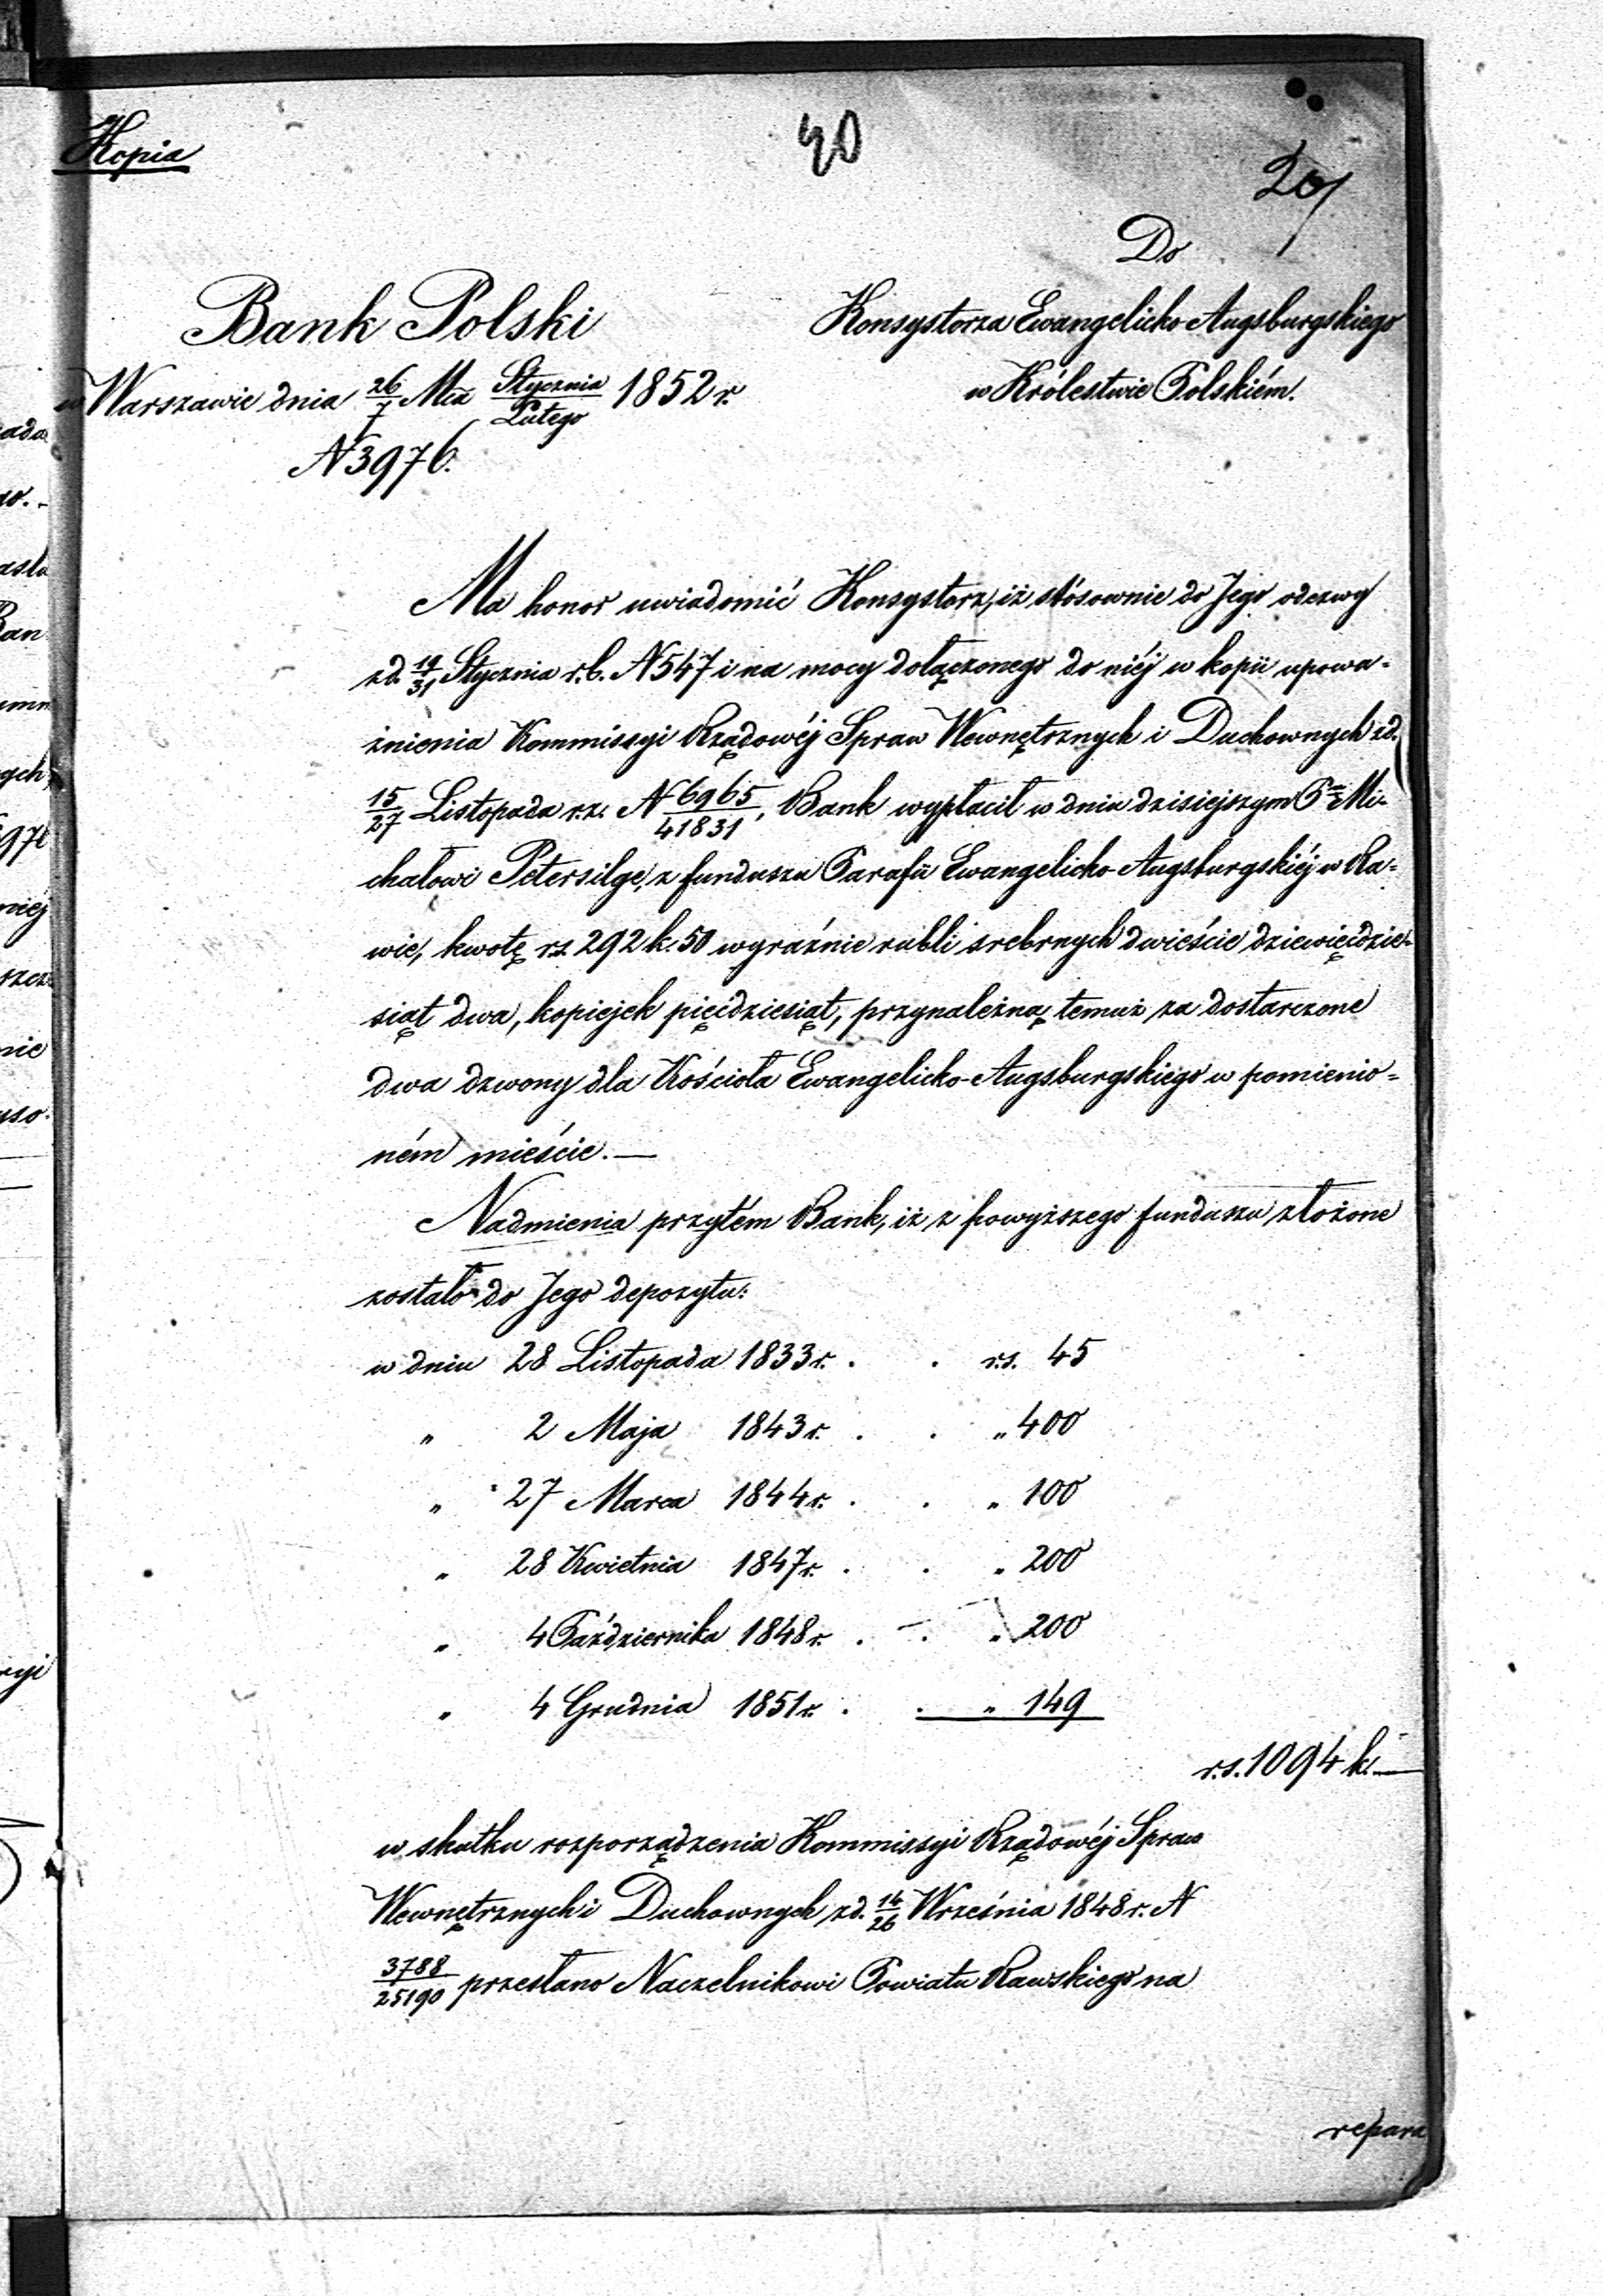 Kopia
40
20
Do
Bank Polski
Konsystorza Ewangelicko Augsburgskiego
w Warszawie dnia 26/7 Mca Stycznia/Lutego 1852 r.
w Królestwie Polskiém.
N 3976.
Ma honor uwiadomić Konsystorz, iż stósownie do Jego odezwy
z d. 19/31 Stycznia r. b. N 547 i na mocy dołączonego do niéj w kopii upowa-
żnienia Kommissyi Rządowéj Spraw Wewnętrznych i Duchownych z d.
15/27 Listopada r. z. N 6965/41831, Bank wypłacił w dniu dzisiejszym Pnu Mi-
chałowi Petersilge, z funduszu Parafii Ewangelicko-Augsburgskiéj w Ra-
wie, kwotę rs. 292 k. 50 wyraźnie rubli srebrnych dwieście dziewięćdzie-
siąt dwa, kopiejek pięćdziesiąt, przynależną temuż za dostarczone
dwa dzwony dla Kościoła Ewangelicko-Augsburgskiego w pomienio-
ném mieście. —
Nadmienia przytém Bank, iż z powyższego funduszu złożone
zostało do Jego depozytu:
w dniu 28 Listopada 1833 r. . . r.s. 45
" 2 Maja 1843 r. . . " 400
" 27 Marca 1844 r. . . " 100
" 28 Kwietnia 1847 r. . . " 200
" 4 Października 1848 r. . . " 200
" 4 Grudnia 1851 r. . . " 149
r.s. 1094 k. —
w skutku rozporządzenia Kommissyi Rządowéj Spraw
Wewnętrznych i Duchownych z d. 14/26 Września 1848 r. N
3788/25190 przesłano Naczelnikowi Powiatu Rawskiego na
repara